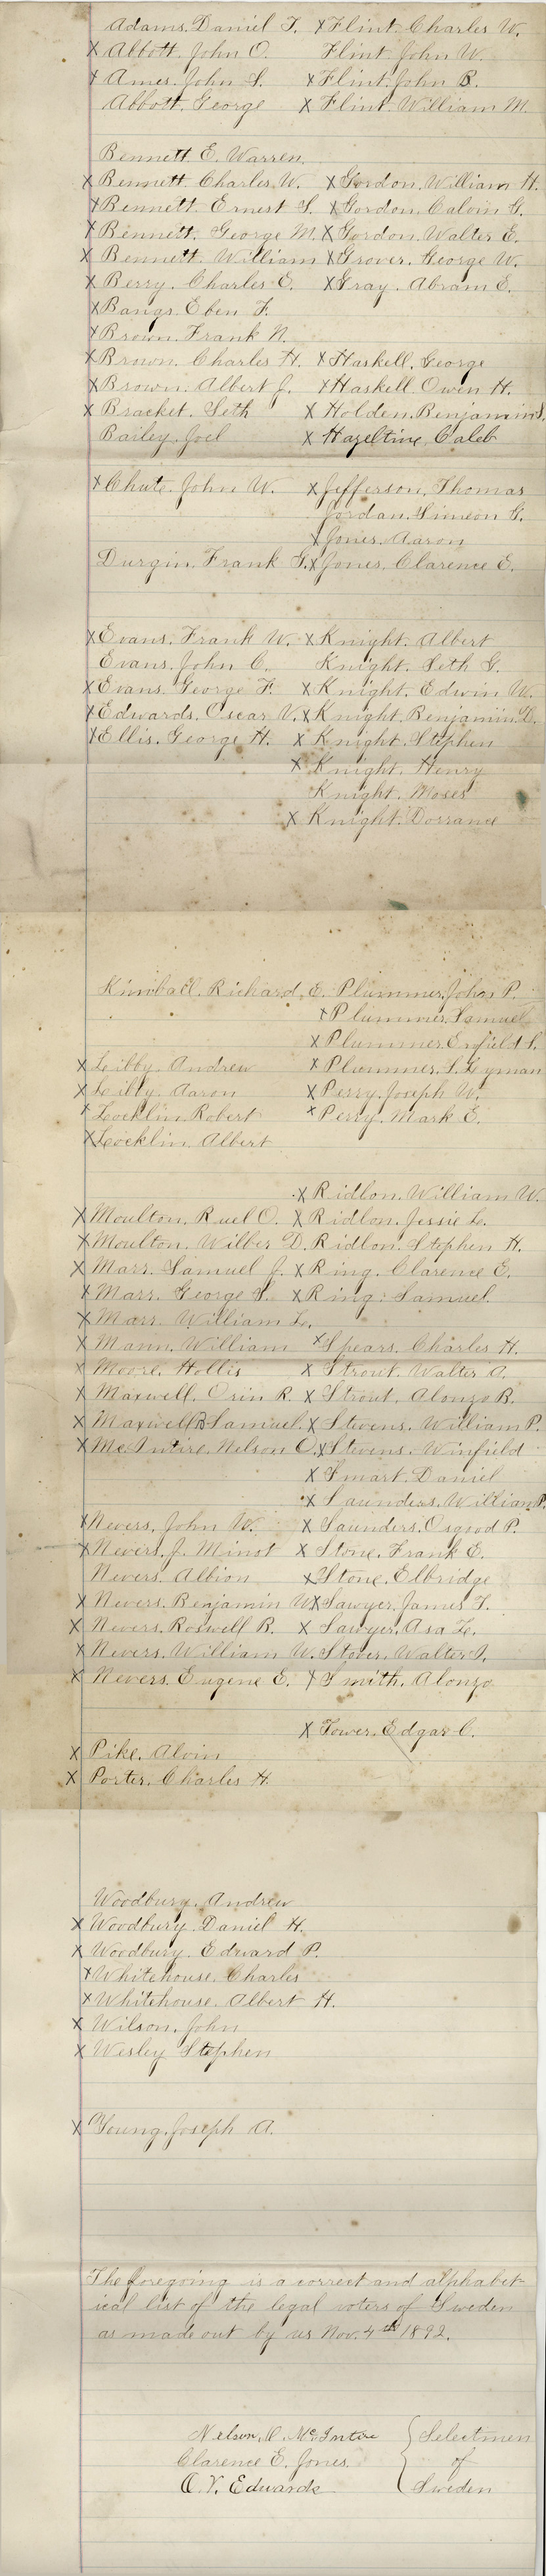 Adams, Daniel T.
X Abbott, John O.
X Ames, John S.
Abbott, George
Bennett E. Warren,
X Bennett, Charles W.
X Bennett, Ernest S.
X Bennett, George M.
X Bennett, William
X Berry, Charles E.
X Bangs, Eben F.
X Brown, Frank N.
X Brown, Charles H.
X Brown, Albert J.
X Bracket, Seth
Bailey, Joel
X Chute, John W.
Durgin, Frank G.
X Evans, Frank W.
Evans, John C.
X Evans, George F.
X Edwards, Oscar V.
X Ellis, George H.
X Flint, Charles W.
Flint, John W.
X Flint, John B.
X Flint, William M.
X Gordon, William H.
X Gordon, Calvin G.
X Gordon, Walter E.
X Grover, George W.
X Gray, Abram E.
X Haskell, George
X Haskell, Owen H.
X Holden, Benjamin S.
X Hazeltine, Caleb
X Jefferson, Thomas
Jordan, Simeon G.
X Jones, Aaron
X Jones, Clarence E.
X Knight, Albert
Knight, Seth G.
X Knight, Edwin W.
X Knight, Benjamin D.
X Knight, Stephen
X Knight, Henry
Knight, Moses
X Knight, Dorrance
Kimball, Richard, E.
X Libby, Andrew
X Libby, Aaron
X Locklin, Robert
X Locklin, Albert
X Moulton, Ruel O.
X Moulton, Wilber D.
X Marr, Samuel J.
X Marr, George S.
X Marr, William L.
X Mann, William
X Moore, Hollis
X Maxwell, Orin R.
X Maxwell B Samuel.
X McIntire, Nelson O.
X Nevers, John W.
X Nevers, J. Minot
Nevers, Albion
X Nevers, Benjamin W.
X Nevers, Roswell R.
X Nevers, William W.
X Nevers, Eugene E.
X Pike, Alvin
X Porter, Charles H.
Plummer, John P.
X Plummer, Samuel
X Plummer, Enfield S.
X Plummer, S. Lyman
X Perry, Joseph W.
X Perry, Mark E.
X Ridlon, William W.
X Ridlon, Jessie L.
Ridlon, Stephen H.
X Ring, Clarence E.
X Ring, Samuel
X Spears, Charles H.
X Strout, Walter A.
X Strout, Alonzo B.
X Stevens, William P.
X Stevens, Winfield
X Smart, Daniel
X Saunders, William P.
X Saunders, Osgood P.
X Stone, Frank E.
X Stone, Elbridge
X Sawyer, James T.
X Sawyer, Asa L.
Stover, Walter I.
X Smith, Alonzo
X Tower, Edgar C.
Woodbury, Andrew
X Woodbury, Daniel H.
X Woodbury, Edward P.
X Whitehouse, Charles
X Whitehouse, Albert H.
X Wilson, John
X Wesley Stephen
X Young, Joseph A.
The foregoing is a correct and alphabet-
ical list of the legal voters of Sweden
as made out by us Nov. 4th 1892.
Nelson, O. McIntire
Clarence E. Jones.
O. V. Edwards
Selectmen
of
Sweden